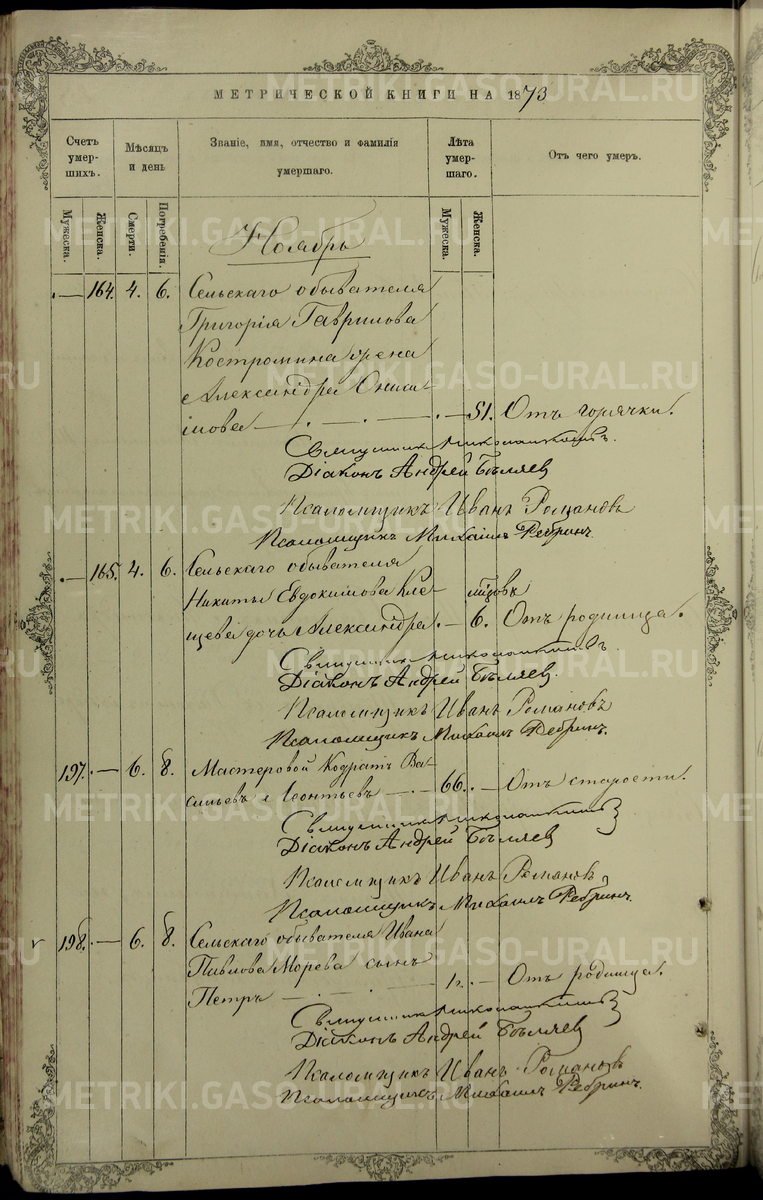 МЕТРИЧЕСКОЙ КНИГИ НА 1873
Счетъ умершихъ.
Мѣсяцъ и день
Званіе, имя, отчество и фамилія умершаго.
Лѣта умершаго.
Отъ чего умеръ.
Мужеска.
Женска.
Смерти.
Погребенія.
Мужеска.
Женска.
Ноябрь
— 164. 4. 6. Сельскаго обывателя
Григорія Гаврилова
Костромина жена
Александра Ониси-
мова — 51. Отъ горячки.
Священникъ
Діаконъ Андрей Бѣляев
Псаломщикъ Иванъ Романовъ
Псаломщикъ Михаилъ Ребринъ.
— 165. 4. 6. Сельскаго обывателя
Никиты Евдокимова Кле-
щева дочь Александра. — 6. Отъ родимца.
Священникъ
Діаконъ Андрей Бѣляев.
Псаломщикъ Иванъ Романовъ
Псаломщикъ Михаилъ Ребринъ.
197. — 6. 8. Мастеровой Кодратъ Ва-
сильевъ Леонтьевъ — 66. — Отъ старости.
Священникъ
Діаконъ Андрей Бѣляев
Псаломщикъ Иванъ Романовъ
Псаломщикъ Михаилъ Ребринъ.
198. — 6. 8. Сельскаго обывателя Ивана
Павлова Морева сынъ
Петръ — 1г. — Отъ родимца.
Священникъ
Діаконъ Андрей Бѣляев
Псаломщикъ Иванъ Романовъ
Псаломщикъ Михаилъ Ребринъ.
METRIKI.GASO-URAL.RU